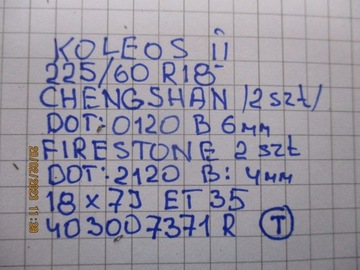 KOLEOS II
225/60 R18
CHENGSHAN /2 szt/
DOT: 0120 B 6мм
FIRESTONE 2 szt
DOT: 2120 B: 4мм
18 x 7J ET 35
403007371R T